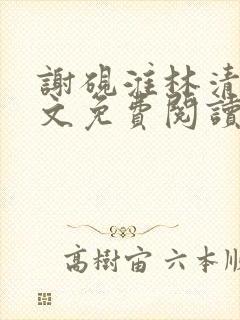 謝硯淮林清
文免費閱讀
高樹宙 六本順